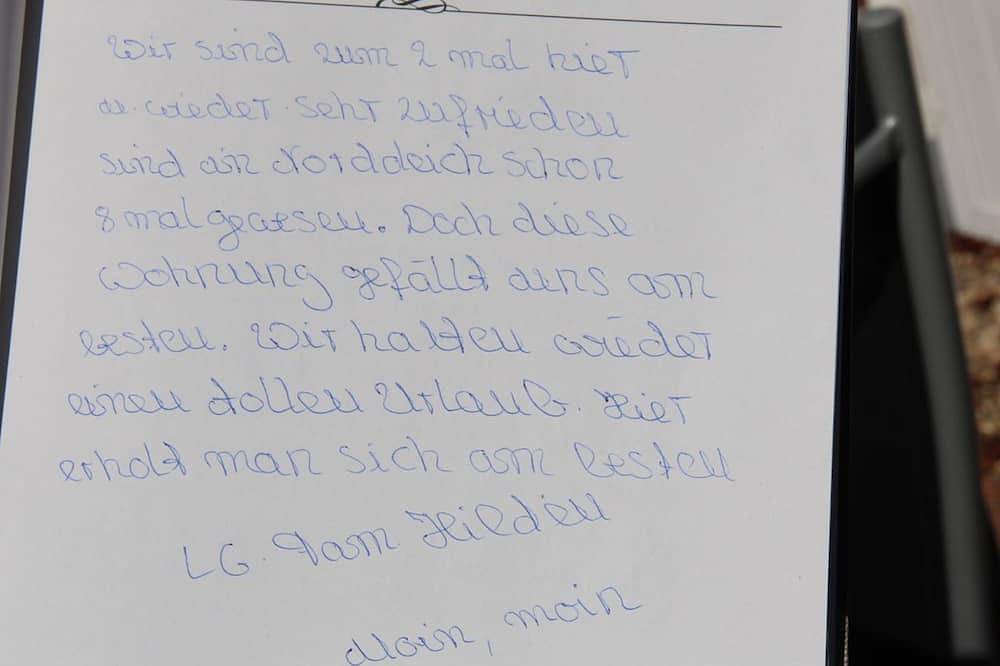 Wir sind zum 2 mal hier
u. wieder sehr zufrieden
sind in Norddeich schon
8 mal gewesen. Doch diese
Wohnung gefällt uns am
besten. Wir hatten wieder
einen tollen Urlaub. Hier
erholt man sich am besten
LG. Fam
Moin, moin